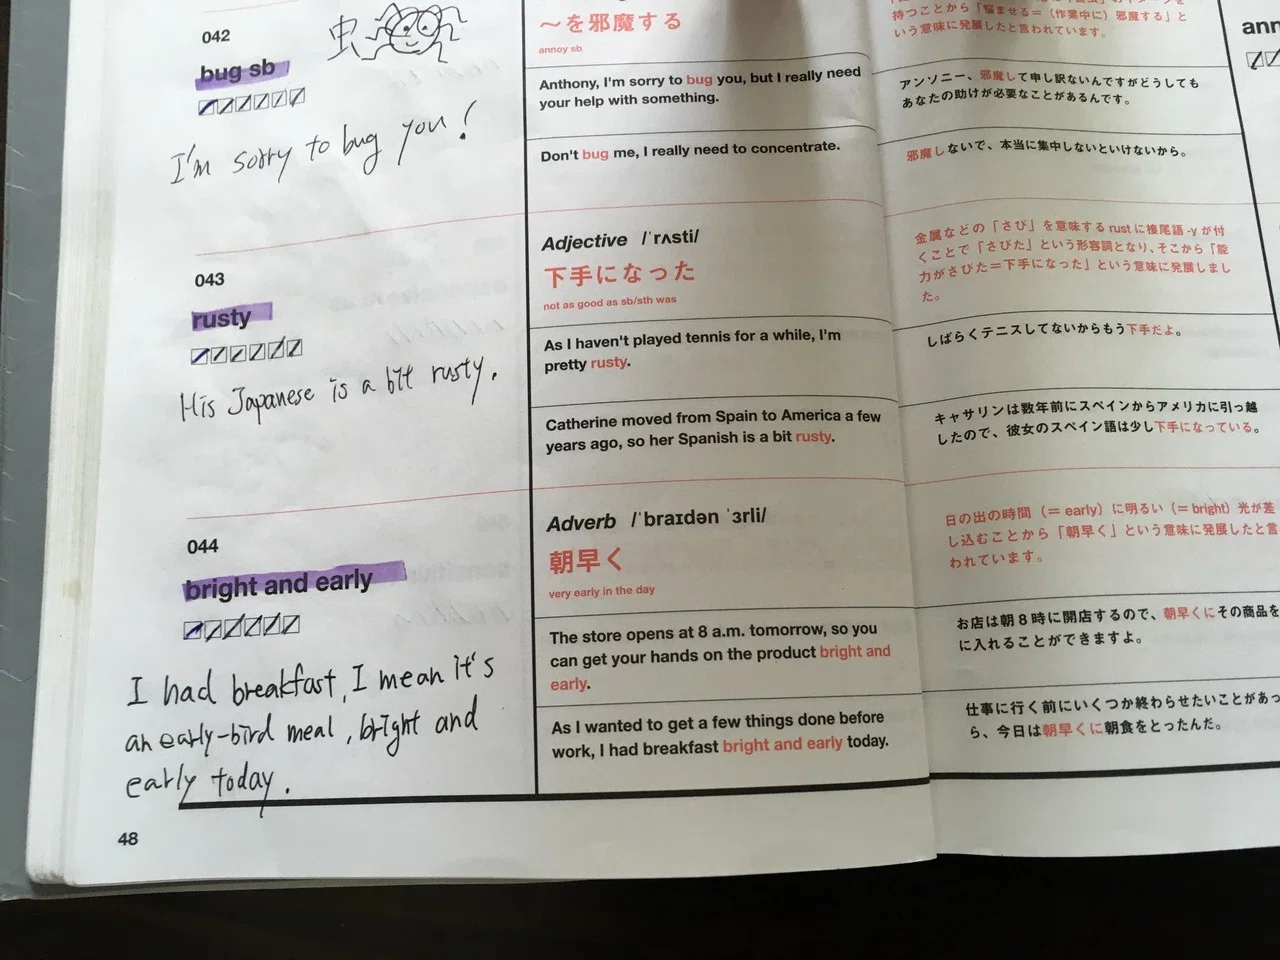 042
虫
bug sb
I'm sorry to bug you!
〜を邪魔する
annoy sb
Anthony, I'm sorry to bug you, but I really need
your help with something.
Don't bug me, I really need to concentrate.
持つことから「悩ませる=(作業中に)邪魔する」と
いう意味に発展したと言われています。
アンソニー、邪魔して申し訳ないんですがどうしても
あなたの助けが必要なことがあるんです。
邪魔しないで、本当に集中しないといけないから。
ann
043
rusty
His Japanese is a bit rusty.
Adjective /ˈrʌsti/
下手になった
not as good as sb/sth was
As I haven't played tennis for a while, I'm
pretty rusty.
Catherine moved from Spain to America a few
years ago, so her Spanish is a bit rusty.
金属などの「さび」を意味する rust に接尾語 -y が付
くことで「さびた」という形容詞となり、そこから「能
力がさびた=下手になった」という意味に発展しまし
た。
しばらくテニスしてないからもう下手だよ。
キャサリンは数年前にスペインからアメリカに引っ越
したので、彼女のスペイン語は少し下手になっている。
044
bright and early
I had breakfast, I mean it's
an early-bird meal, bright and
early today.
Adverb /ˈbraɪdən ˈɜrli/
朝早く
very early in the day
The store opens at 8 a.m. tomorrow, so you
can get your hands on the product bright and
early.
As I wanted to get a few things done before
work, I had breakfast bright and early today.
日の出の時間(= early)に明るい(= bright)光が差
し込むことから「朝早く」という意味に発展したと言
われています。
お店は朝8時に開店するので、朝早くにその商品を
に入れることができますよ。
仕事に行く前にいくつか終わらせたいことがあっ
ら、今日は朝早くに朝食をとったんだ。
48